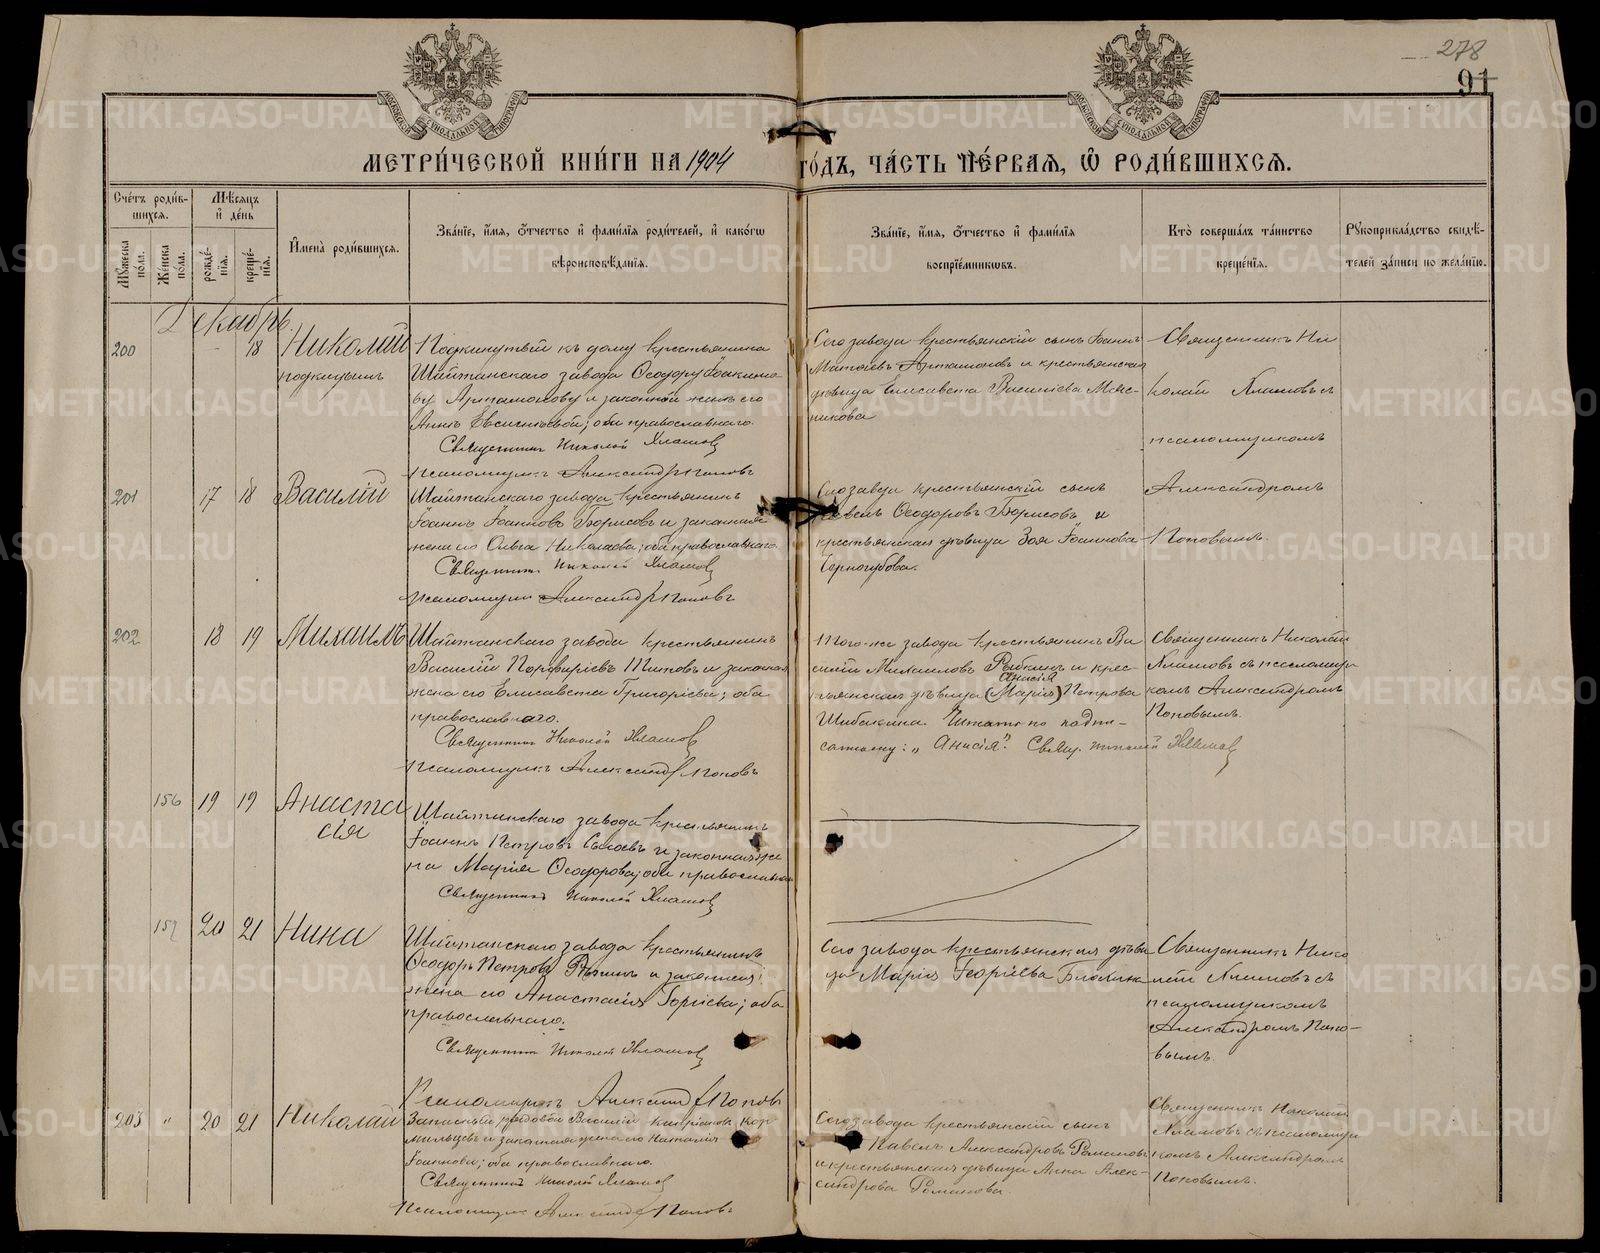 278
91
МЕТРИ́ЧЕСКОЙ КНИ́ГИ НА 1904 ГО́ДЪ, ЧА́СТЬ ПЕ́РВАЯ, Ѡ РОДИ́ВШИХСЯ.
Сче́тъ роди́в-
шихся.
Мѣ́сяцъ
и҆ де́нь
Мꙋ́жеска
по́ла.
Же́нска
по́ла.
рожде́-
нїя.
креще́-
нїя.
И҆мена̀ роди́вшихся.
Зва́нїе, и҆́мя, ѻ҆́тчество и҆ фами́лїя роди́телей, и҆ како́гѡ
вѣроисповѣ́данїя.
Зва́нїе, и҆́мя, ѻ҆́тчество и҆ фами́лїя
воспрїе́мникѡвъ.
Кто̀ соверша́лъ та́инство
креще́нїя.
Рꙋкоприкла́дство свидѣ́-
телей за́писи по жела́нїю.
Декабрь.
200
18
Николай
подкидышъ
Подкинутый къ дому крестьянина
Шайтанскаго завода Ѳеодору Іоакимо-
ву Артамонову и законной женѣ его
Аннѣ Евсигніевой; оба православнаго.
Священникъ Николай Хламов
Псаломщикъ Александръ Поповъ
Сего завода крестьянскій сынъ Іоаннъ
Матѳіевъ Артамоновъ и крестьянская
дѣвица Елисавета Васильева Мяс-
никова
Священникъ Ни
колай Хламовъ съ
псаломщикомъ
Александромъ
Поповымъ.
201
17
18
Василій
Шайтанскаго завода крестьянинъ
Іоаннъ Іоанновъ Борисовъ и законная
жена его Ольга Николаева; оба православнаго.
Священникъ Николай Хламов
Псаломщикъ Александръ Поповъ
Сего завода крестьянскій сынъ
Павелъ Ѳеодоровъ Борисовъ и
крестьянская дѣвица Зоя Іоаннова
Черногубова.
202
18
19
Михаилъ
Шайтанскаго завода крестьянинъ
Василій Порфирьевъ Титовъ и законная
жена его Елисавета Григорьева; оба
православнаго.
Священникъ Николай Хламов
Псаломщикъ Александръ Поповъ
Того-же завода крестьянинъ Ва
силій Михаиловъ Рыбкинъ и крес-
Анисія
тьянская дѣвица (Марія) Петрова
Шибакина. Читать по подчи-
сткому: „Анисія". Свящ. Николай Хламов
Священникъ Николай
Хламовъ съ псаломщи
комъ Александромъ
Поповымъ.
156
19
19
Анаста
сія
Шайтанскаго завода крестьянинъ
Іоаннъ Петровъ Сысоевъ и законная же
на Марія Ѳеодорова; оба православнаго
Священникъ Николай Хламов
157
20
21
Нина
Шайтанскаго завода крестьянинъ
Ѳеодоръ Петровъ и законная
жена его Анастасія Георгіева; оба
православнаго.
Священникъ Николай Хламов
Псаломщикъ Александръ Поповъ
Сего завода крестьянская дѣви
ца Марія Георгіева
Священникъ Нико
лай Хламовъ съ
псаломщикомъ
Александромъ Попо-
вымъ.
203
"
20
21
Николай
Запасный рядовой Василій Кипріановъ Кор
мильцевъ и законная жена его Наталія
Іоаннова; оба православнаго.
Священникъ Николай Хламов
Псаломщикъ Александръ Поповъ
Сего завода крестьянскій сынъ
Павелъ Александровъ Романовъ
и крестьянская дѣвица Анна Алек-
сандрова Романова.
Священникъ Николай
Хламовъ съ псаломщи
комъ Александромъ
Поповымъ.
METRIKI.GASO-URAL.RU